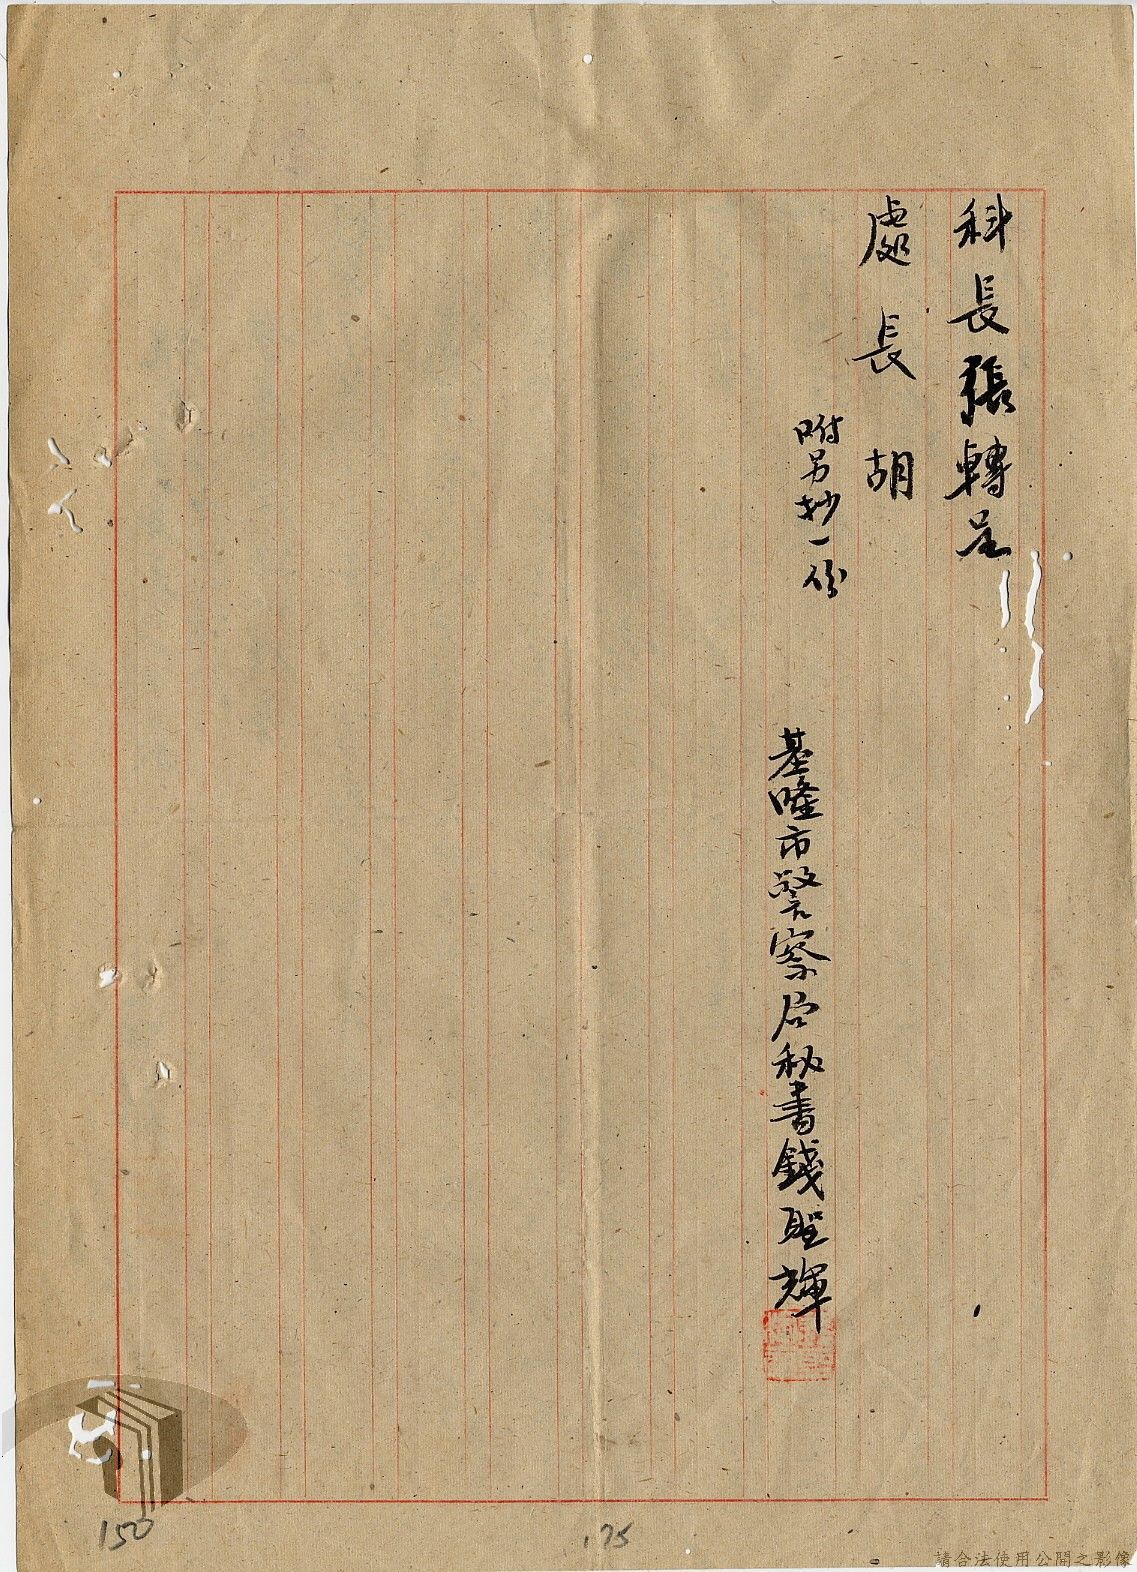 科長張轉呈
處長胡
附另抄一份
基隆市警察局秘書錢聖輝
150
175
請合法使用公開之影像